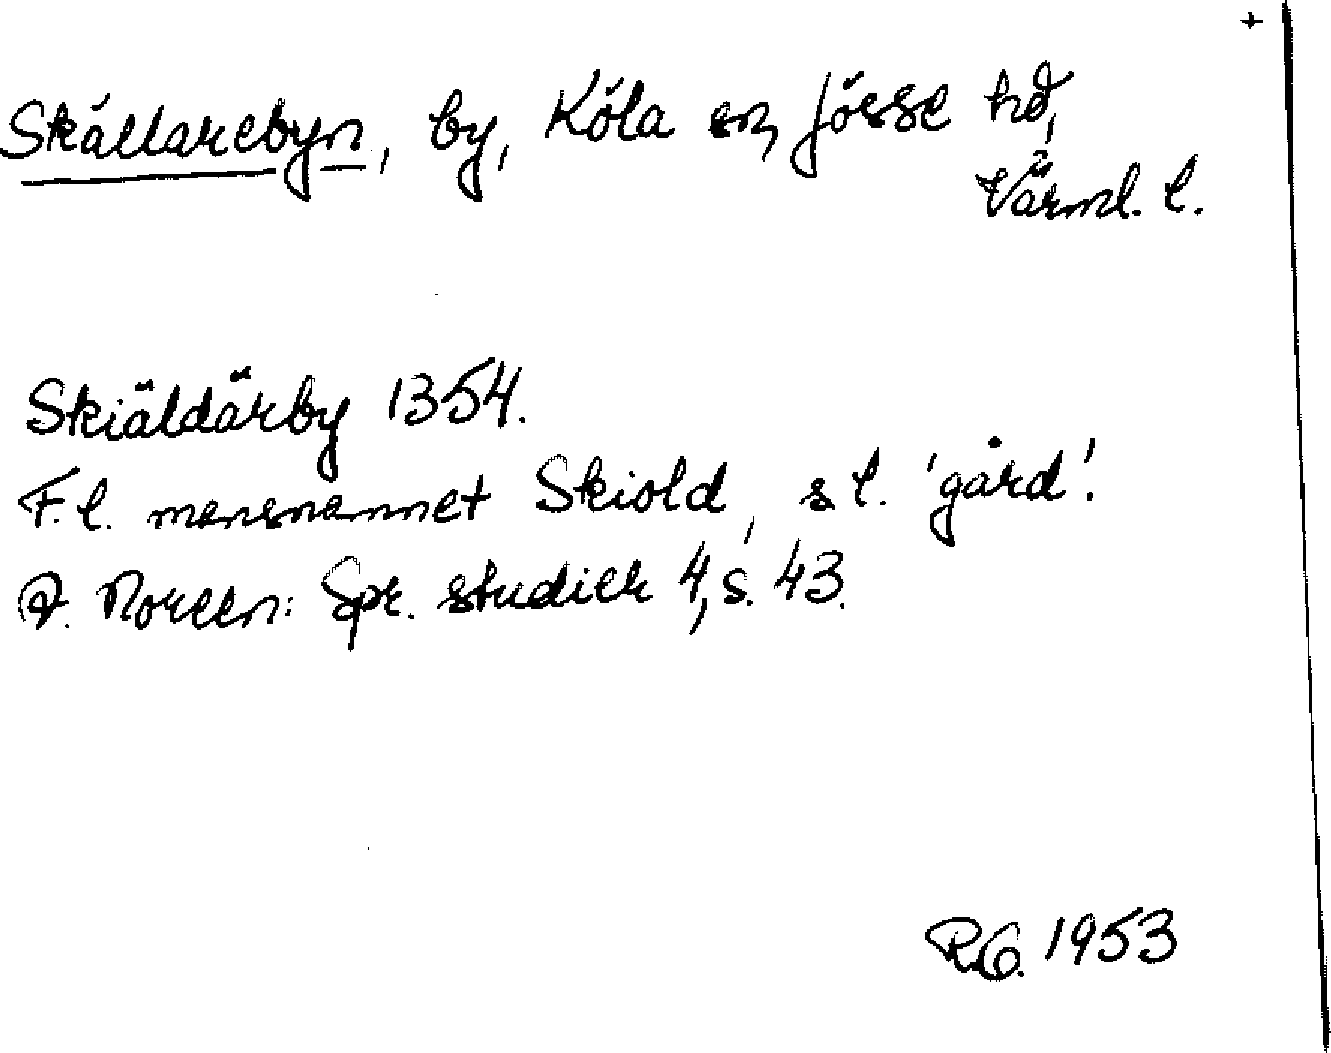 +
Skällarebyn, by, Köla sn, Jösse hd,
Värml. l.
Skiäldärby 1354.
F.l. mansnamnet Skiold, s l. 'gård'.
A. Noreen: Spr. studier 4, s. 43.
R.G. 1953